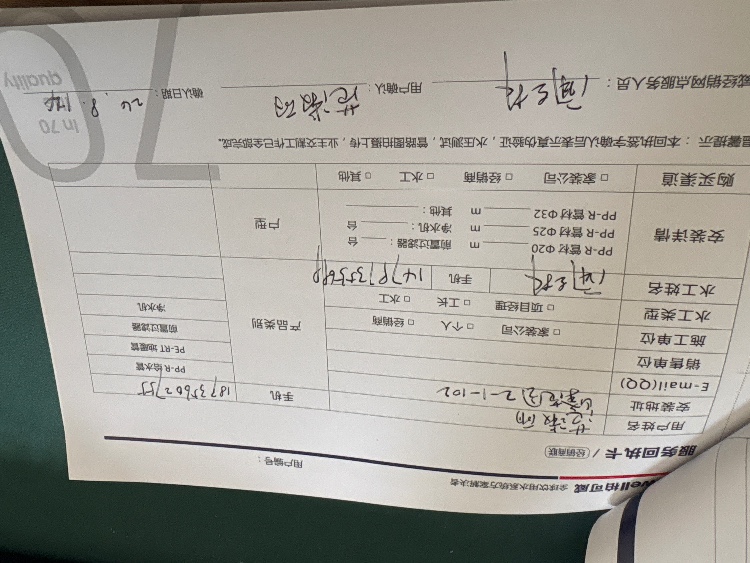 well柏可威 全球饮用水系统方案解决者
服务回执卡 / (经销商联)
用户编号：
用户姓名 手机 18735602755
安装地址 2-1-102
E-mail(QQ)
销售单位
施工单位 □ 家装公司 □ 个人 □ 经销商
水工类型 □ 项目经理 □ 工长 □ 水工
水工姓名 手机
产品类别
PP-R 给水管
PE-RT 地暖管
前置过滤器
净水机
安装详情
PP-R 管材 Φ20 m 前置过滤器： 台
PP-R 管材 Φ25 m 净水机： 台
PP-R 管材 Φ32 m 其他：
户型
购买渠道 □ 家装公司 □ 经销商 □ 水工 □ 其他
温馨提示：本回执签字确认后表示真伪验证，水压测试，管路图拍摄上传，业主交割工作已全部完成。
威经销网点服务人员： 用户确认： 确认日期： 24. 8.
70
In 70
quality